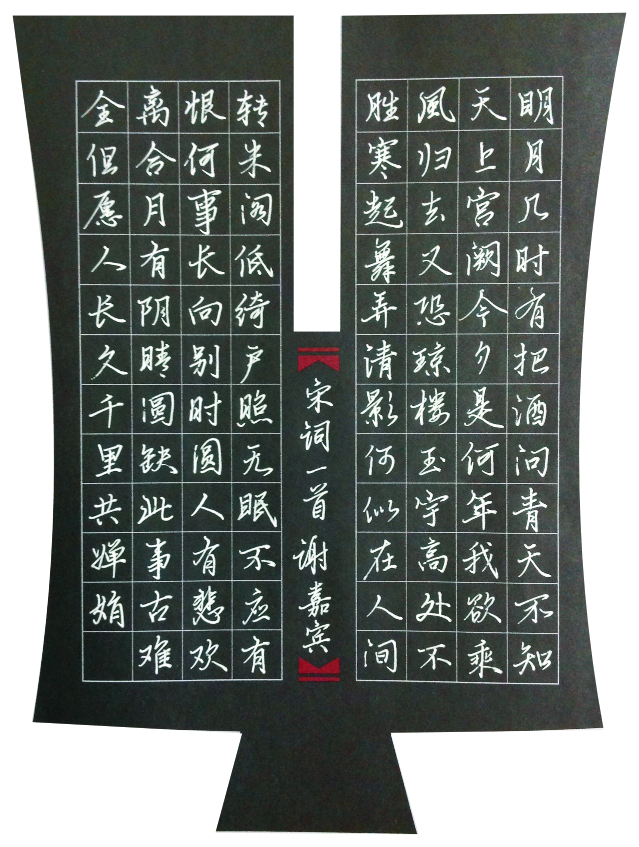 明月几时有把酒问青天不知
天上宫阙今夕是何年我欲乘
風归去又恐琼楼玉宇高处不
胜寒起舞弄清影何似在人间
转朱阁低绮户照无眠不应有
恨何事长向别时圆人有悲欢
离合月有阴晴圆缺此事古难
全但愿人长久千里共婵娟
宋词一首谢嘉宾